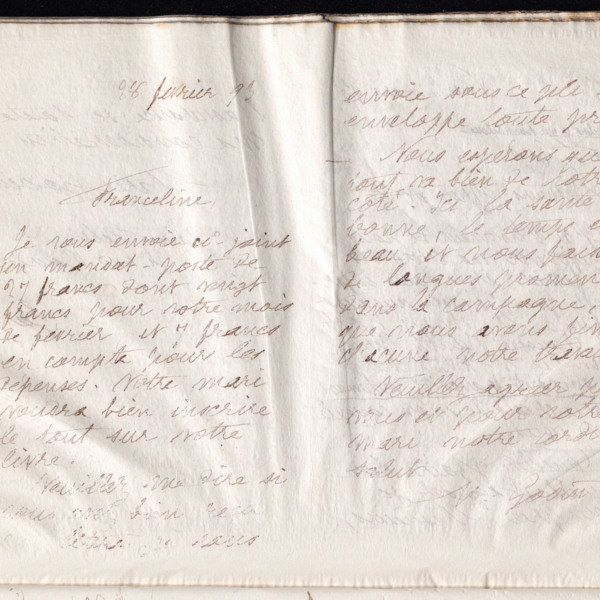 28 février 93
Franceline
Je vous envoie ci-joint
un mandat-poste de
27 francs dont vingt
francs pour votre mois
de février et 7 francs
en compte pour les
dépenses. Votre mari
voudra bien inscrire
le tout sur votre
livre.
Veuillez me dire si
vous avez bien reçu
lettre je vous
envoie sous ce pli
enveloppe toute pr
Nous espérons
tout va bien de votre
côté. Ici la santé
bonne, le temps
beau et nous fai
de longues promen
dans la campagne
que nous avons fin
chacune notre
Veuillez agréer
vous et pour votre
mari notre cordi
salut